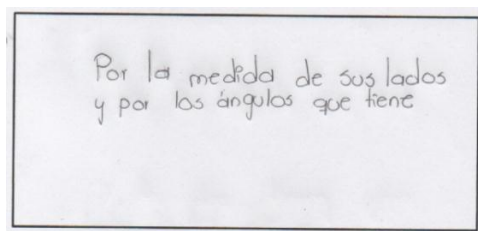 Por la medida de sus lados
y por los ángulos que tiene